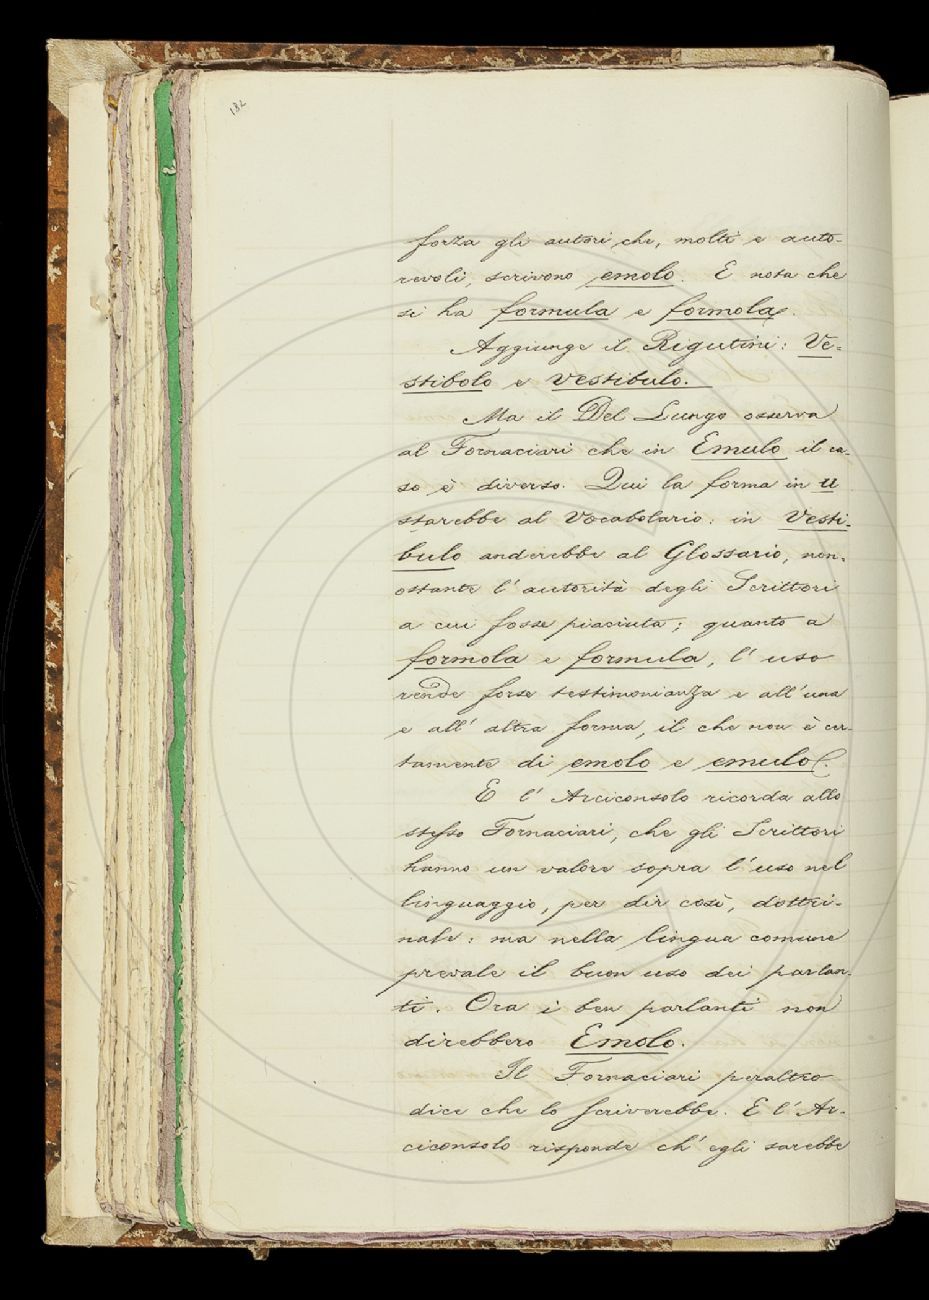 132
forza gli autori che, molti e auto-
revoli, scrivono emolo. E nota che
si ha formula e formola.
Aggiunge il Rigutini: Ve-
stibolo e Vestibulo.
Ma il Del Lungo osserva
al Fornaciari che in Emulo il ca-
so è diverso. Qui la forma in u
starebbe al Vocabolario: in Vesti-
bulo anderebbe al Glossario, non-
ostante l'autorità degli Scrittori
a cui fosse piaciuta; quanto a
formola e formula, l'uso
rende forse testimonianza e all'una
e all'altra forma, il che non è cer-
tamente di emolo e emulo.
E l'Arciconsolo ricorda allo
stesso Fornaciari, che gli Scrittori
hanno un valore sopra l'uso nel
linguaggio, per dir così, dottri-
nale: ma nella lingua comune
prevale il buon uso dei parlan-
ti. Ora i ben parlanti non
direbbero Emolo.
Il Fornaciari peraltro
dice che lo scriverebbe. E l'Ar-
ciconsolo risponde ch'egli sarebbe